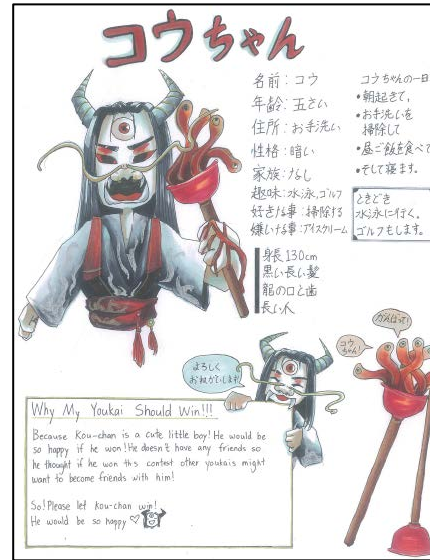 コウちゃん
名前：コウ
年齢：五さい
住所：お手洗い
性格：暗い
家族：なし
趣味：水泳,ゴルフ
好きな事：掃除する
嫌いな事：アイスクリーム
身長130cm
黒い長い髪
龍の口と歯
長い人
コウちゃんの一日
・朝起きて,
・お手洗いを
掃除して
・昼ご飯を食べて
・そして寝ます。
ときどき
水泳に行く。
ゴルフもします。
よろしく
おねがいします
コウ
ちゃん!
がんばって!
Why My Youkai Should Win!!!
Because Kou-chan is a cute little boy! He would be
so happy if he won! He doesn't have any friends so
he thought if he won ths contest other youkais might
want to become friends with him!
So! Please let kou-chan win!
He would be so happy ♡